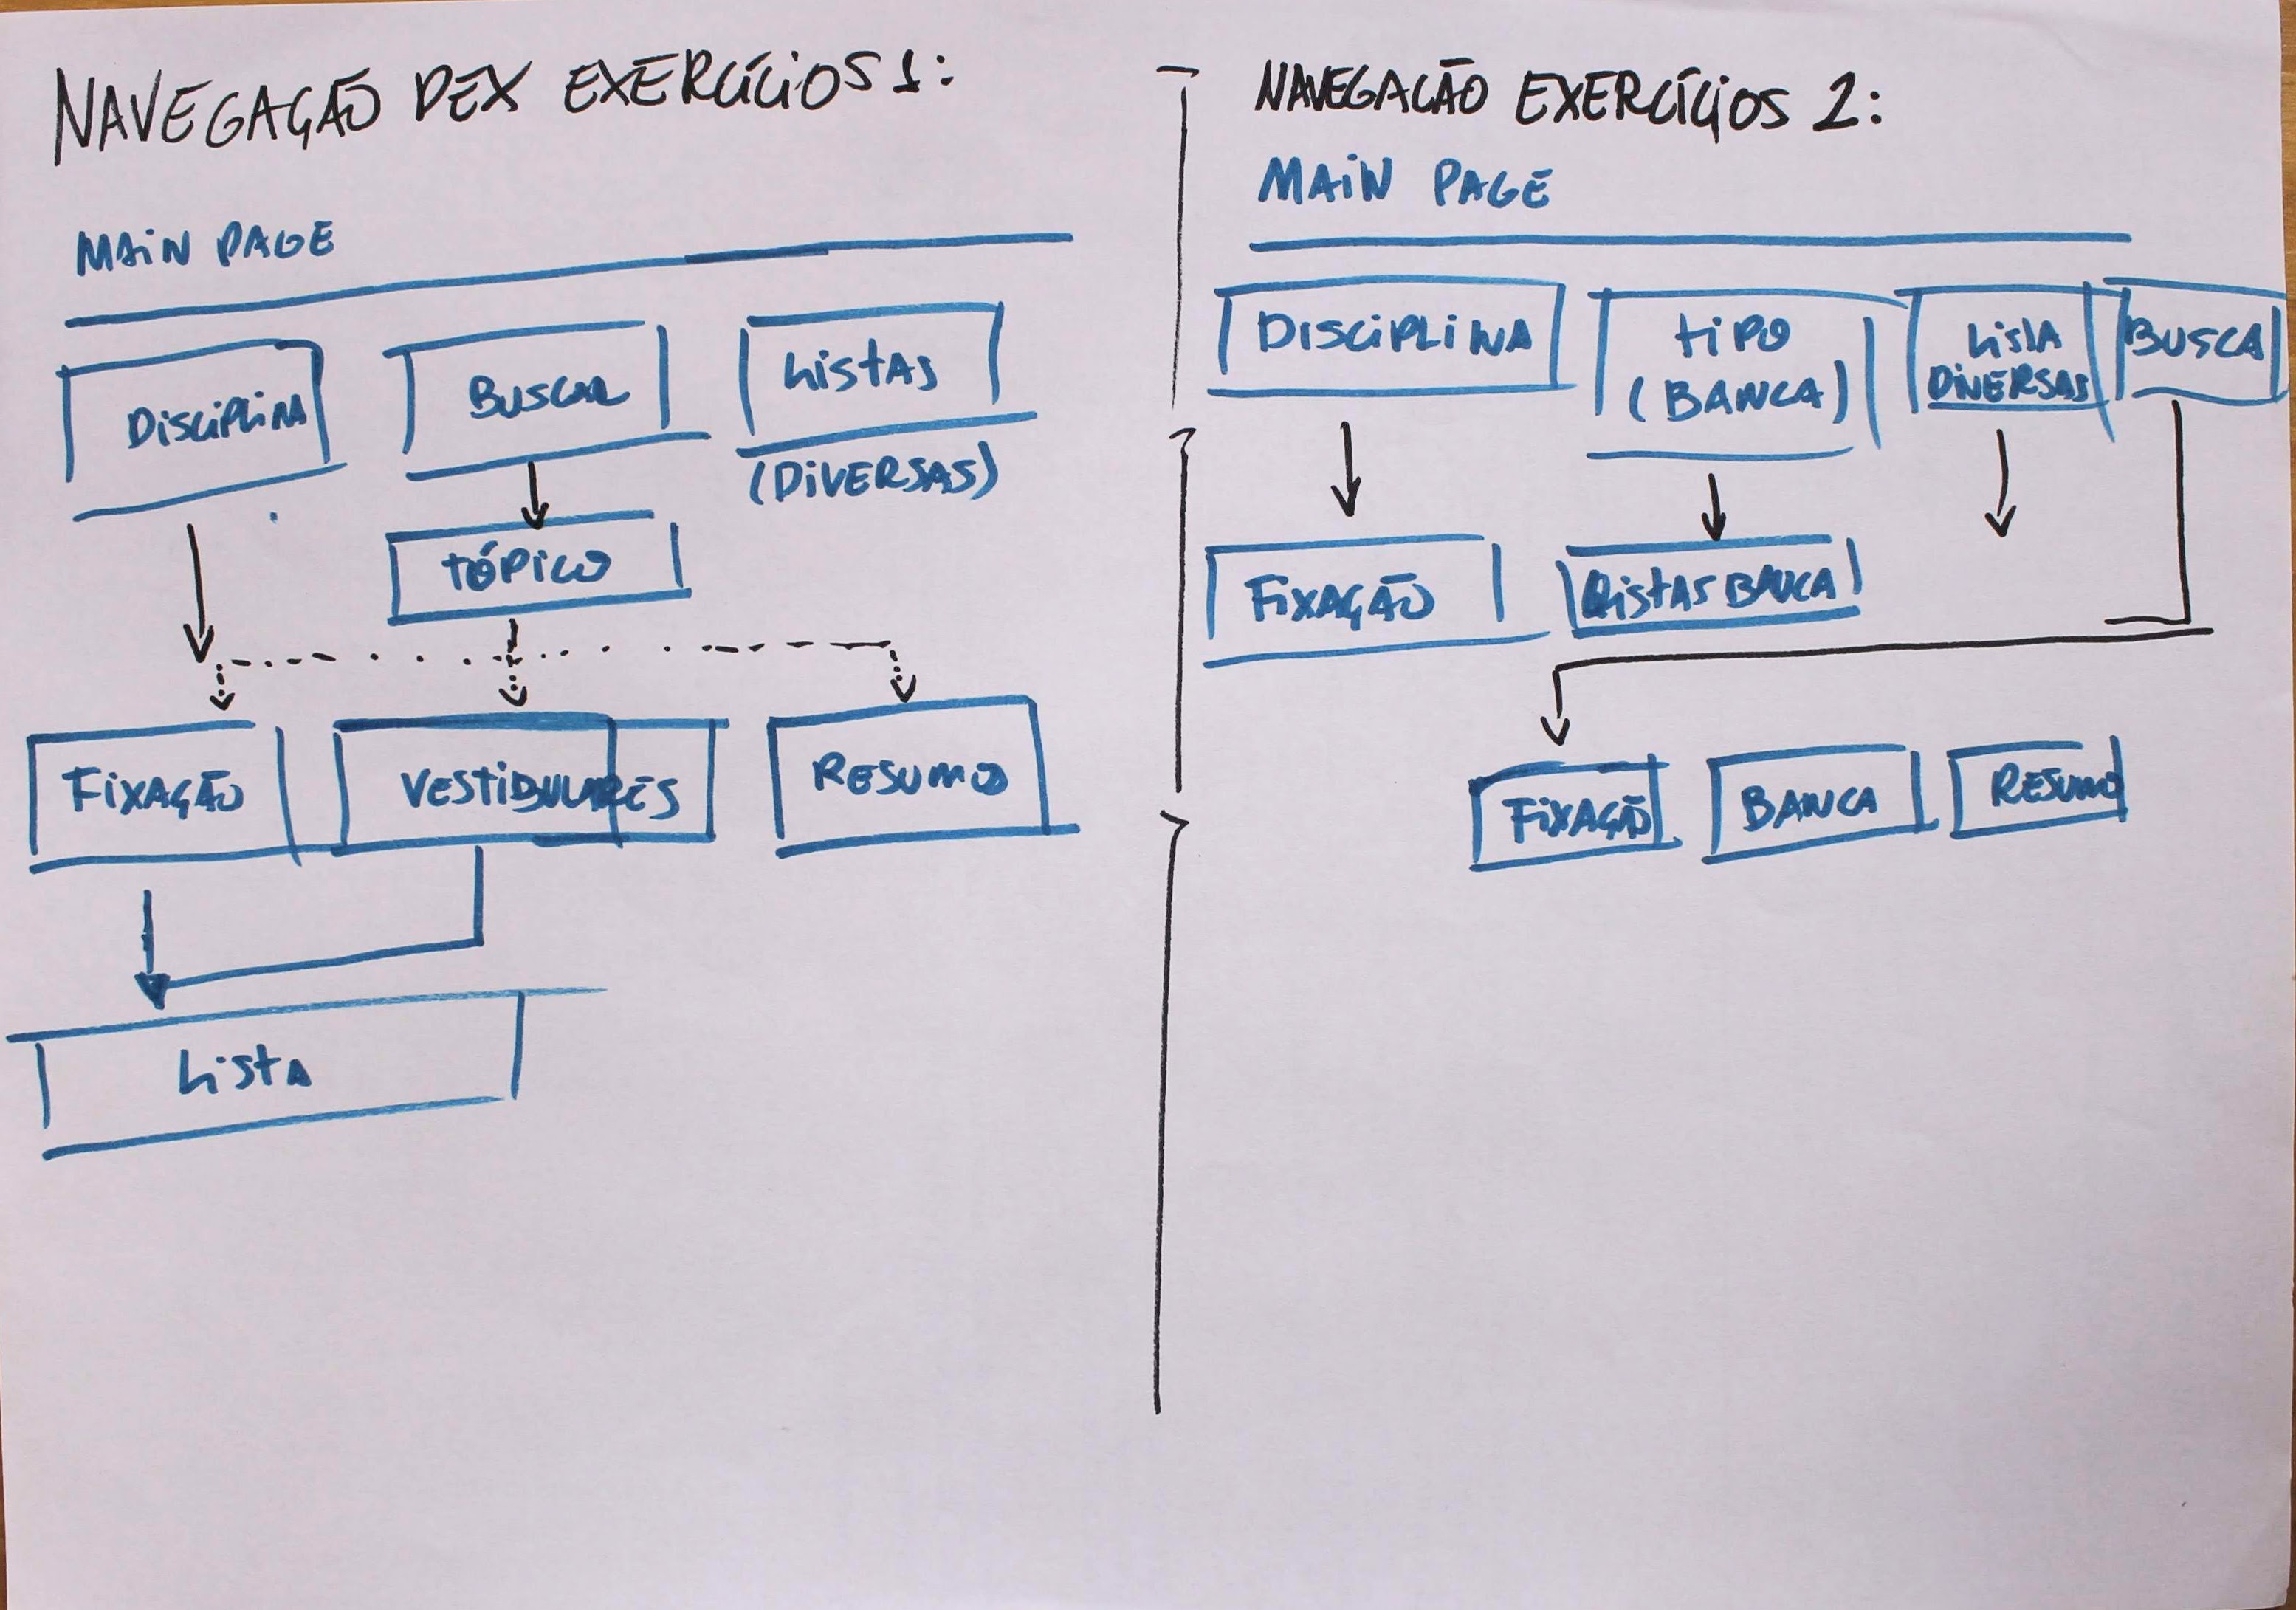 NAVEGAÇÃO DEX EXERCÍCIOS 1:
MAIN PAGE
DISCIPLINA
BUSCAR
LISTAS
(DIVERSAS)
TÓPICO
FIXAÇÃO
VESTIBULARES
RESUMO
LISTA
NAVEGAÇÃO EXERCÍCIOS 2:
MAIN PAGE
DISCIPLINA
TIPO
(BANCA)
LISTA
DIVERSAS
BUSCA
FIXAÇÃO
LISTAS BANCA
FIXAÇÃO
BANCA
RESUMO